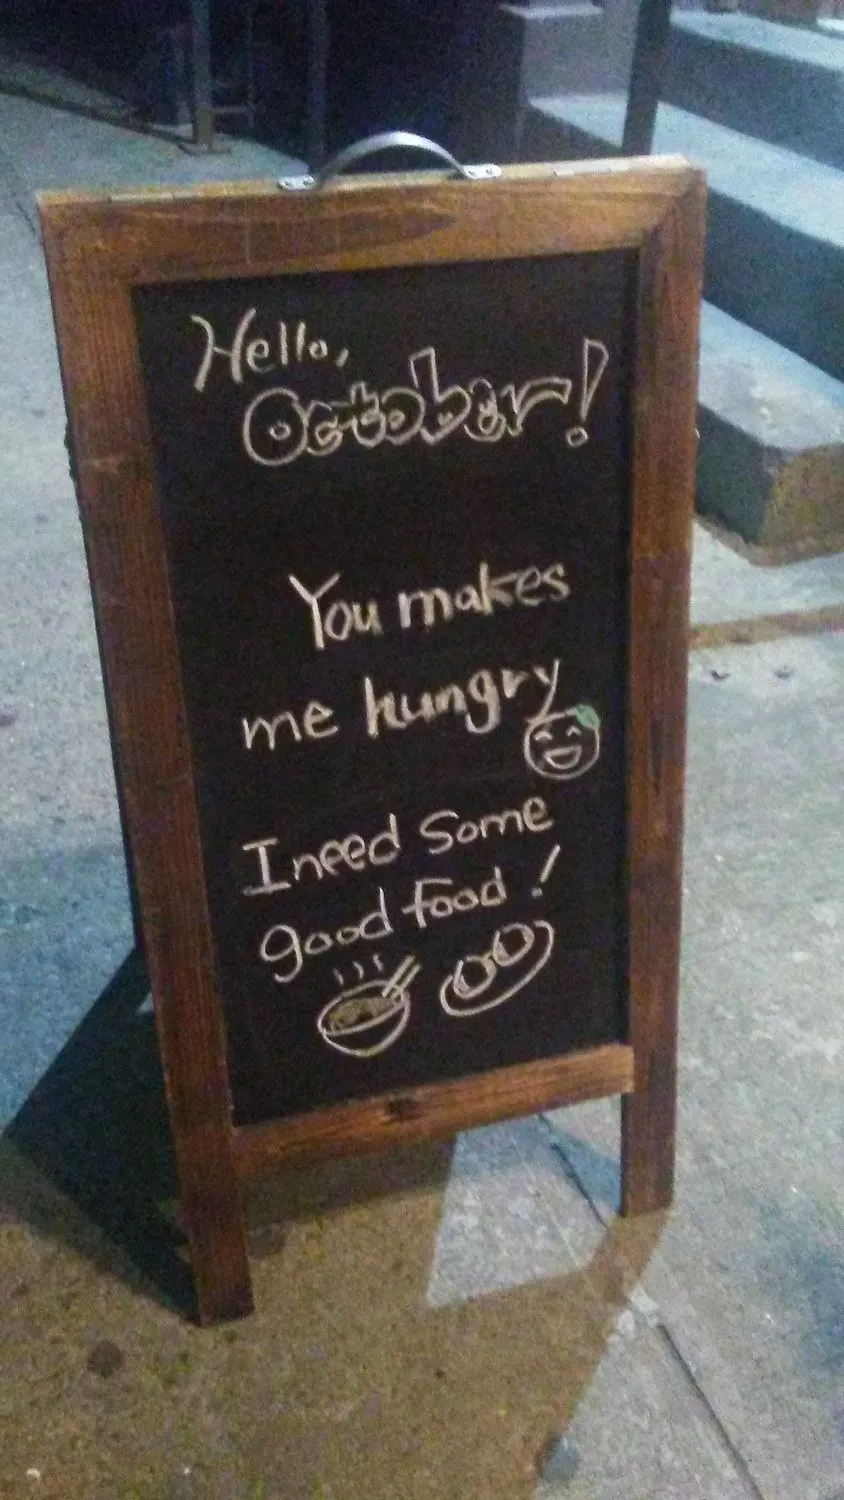 Hello,
October!
You makes
me hungry
I need some
good food!